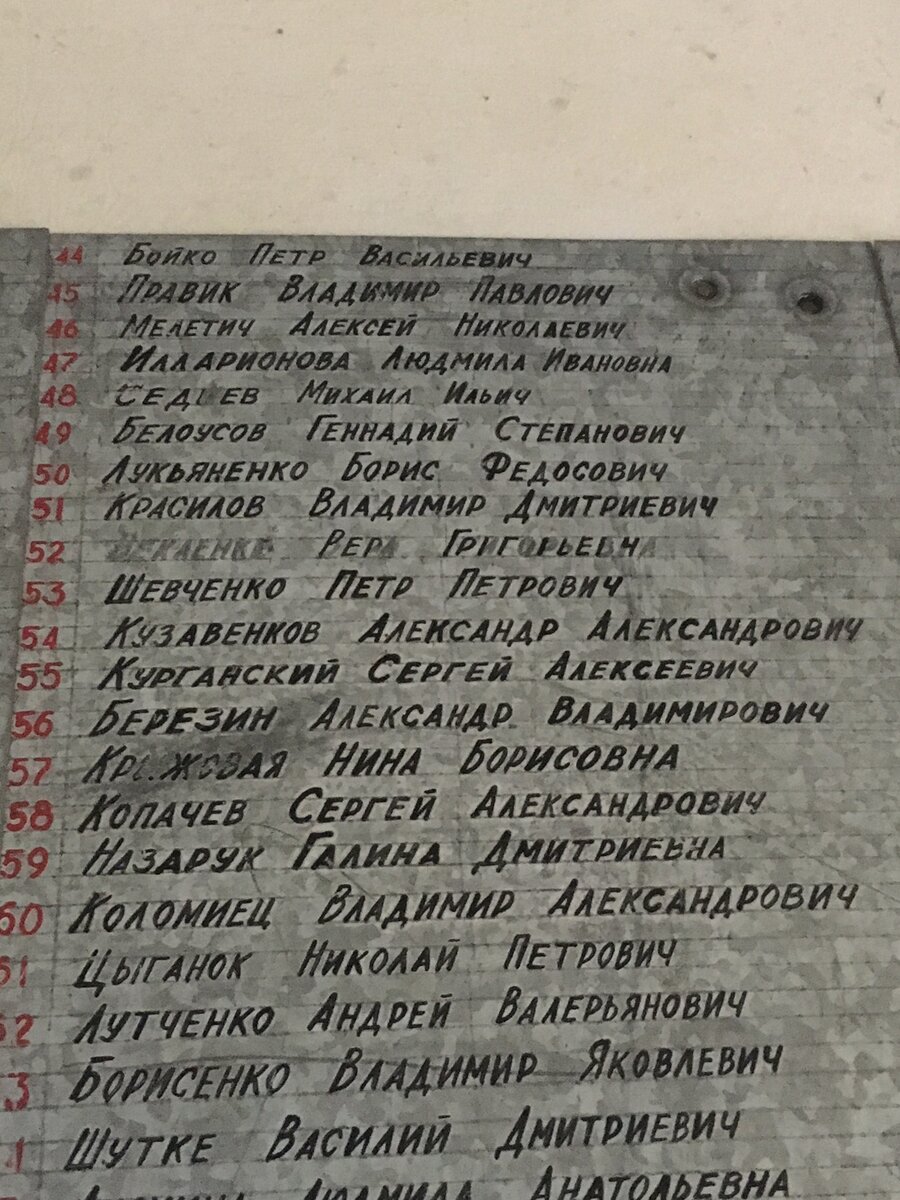 44 Бойко Петр Васильевич
45 Правик Владимир Павлович
46 Мелетич Алексей Николаевич
47 Илларионова Людмила Ивановна
48 Михаил Ильич
49 Белоусов Геннадий Степанович
50 Лукьяненко Борис Федосович
51 Красилов Владимир Дмитриевич
52 Вера Григорьевна
53 Шевченко Петр Петрович
54 Кузавенков Александр Александрович
55 Курганский Сергей Алексеевич
56 Березин Александр Владимирович
57 Нина Борисовна
58 Копачев Сергей Александрович
59 Назарук Галина Дмитриевна
60 Коломиец Владимир Александрович
61 Цыганок Николай Петрович
62 Лутченко Андрей Валерьянович
3 Борисенко Владимир Яковлевич
Шутке Василий Дмитриевич
Людмила Анатольевна